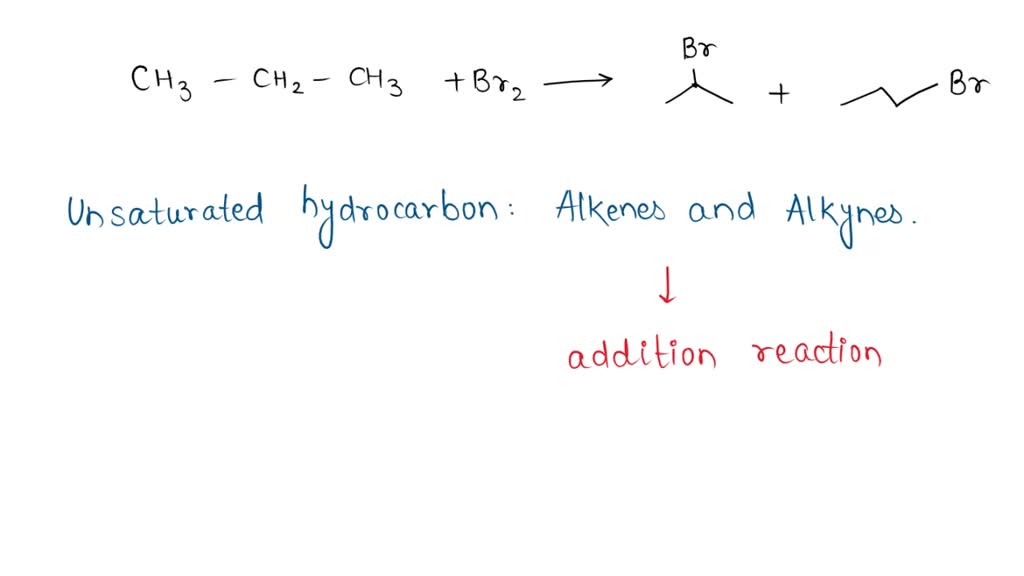 Br
CH3 - CH2 - CH3 + Br2 ⟶ + Br
Unsaturated hydrocarbon: Alkenes and Alkynes.
↓
addition reaction